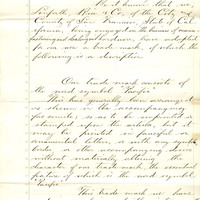 Be it known that we,
Linforth, Rice & Co. of the City and
County of San Francisco, State of Cal-
ifornia, being engaged in the business of manu-
facturing and have adopted
for our use a trade mark, of which the
following is a description
Our trade mark consists of
the word symbol "Pacific"
This has generally been arranged
as shown in the accompanying
fac-simile; so as to be imprinted or
stamped upon the article, but it
may be printed in fanciful or
ornamental letters, or with any symbol,
border, or other accompanying device
without materially altering the
character of our trade mark, the essential
feature of which is the word symbol
"Pacific"
This trade mark we have